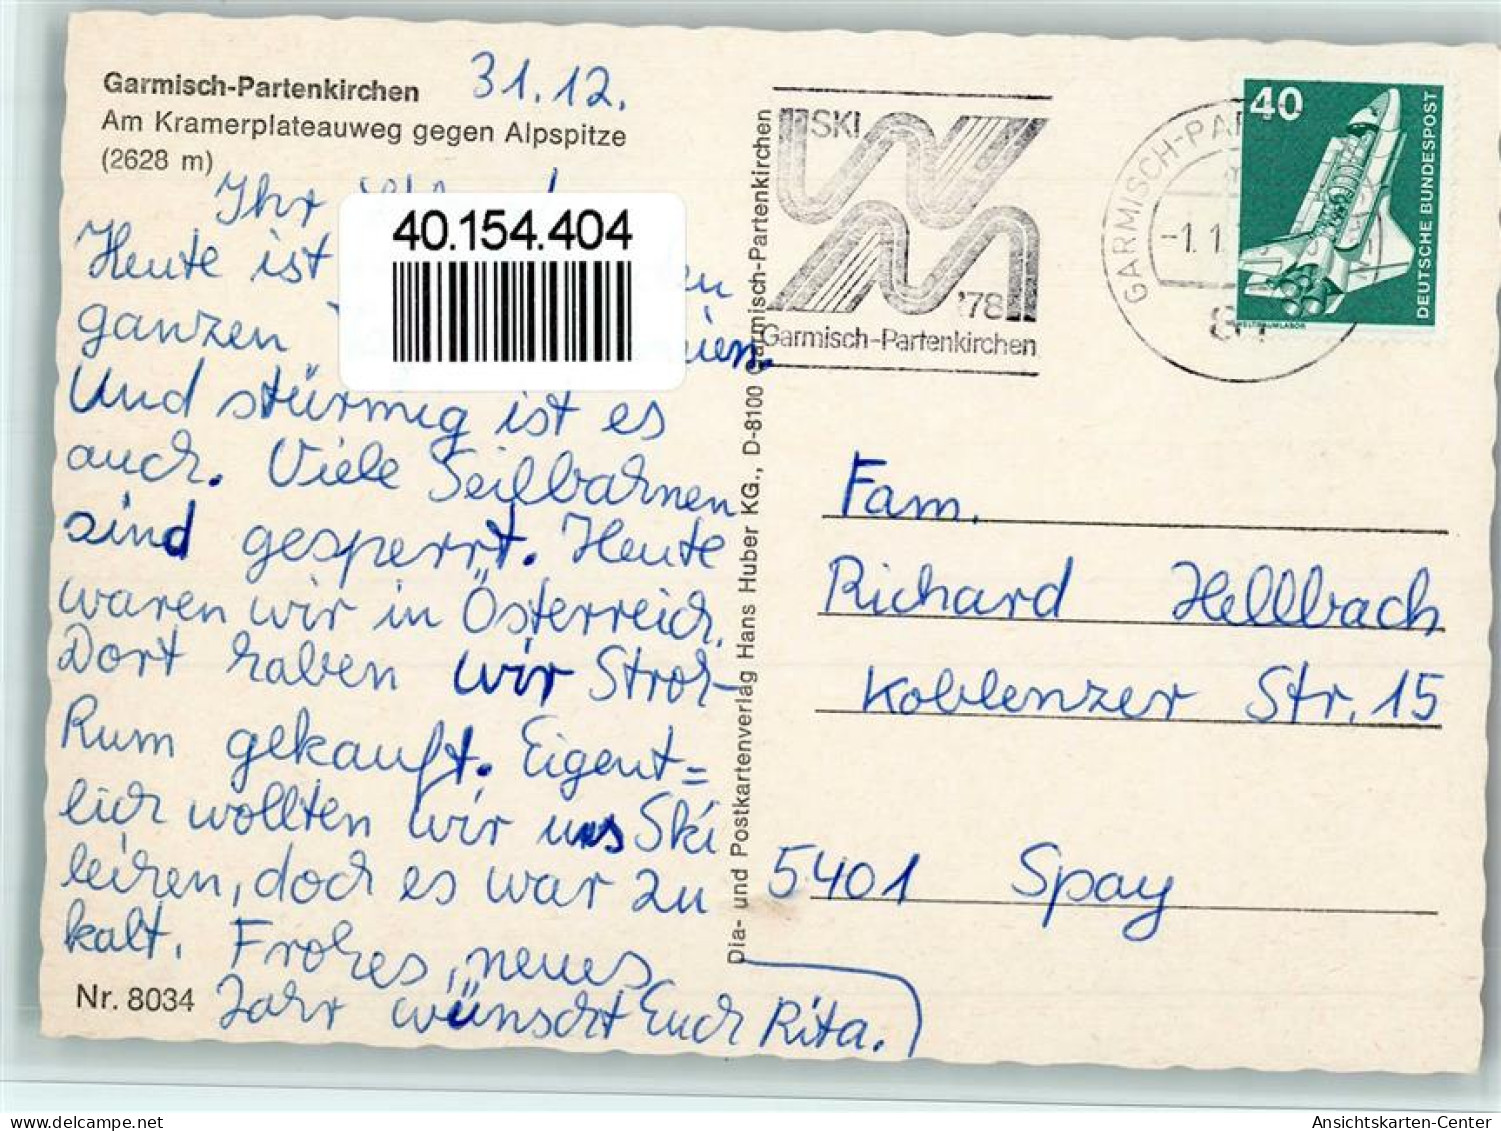 Garmisch-Partenkirchen
Am Kramerplateauweg gegen Alpspitze
(2628 m)
31.12.
Ihr
Heute ist
ganzen
Und stürmig ist es
auch. Viele Seilbahnen
sind gesperrt. Heute
waren wir in Österreich.
Dort haben wir Stroh-
Rum gekauft. Eigent=
lich wollten wir uns Ski
leihen, doch es war zu
kalt. Frohes, neues
Jahr wünscht Euch Rita.
Nr. 8034
40.154.404
Dia- und Postkartenverlag Hans Huber KG., D-8100 Garmisch-Partenkirchen
SKI
'78
Garmisch-Partenkirchen
GARMISCH-PA
-1. 1.
40
DEUTSCHE BUNDESPOST
WELTRAUMLABOR
Fam.
Richard Hellbach
Koblenzer Str. 15
5401 Spay
Ansichtskarten-Center